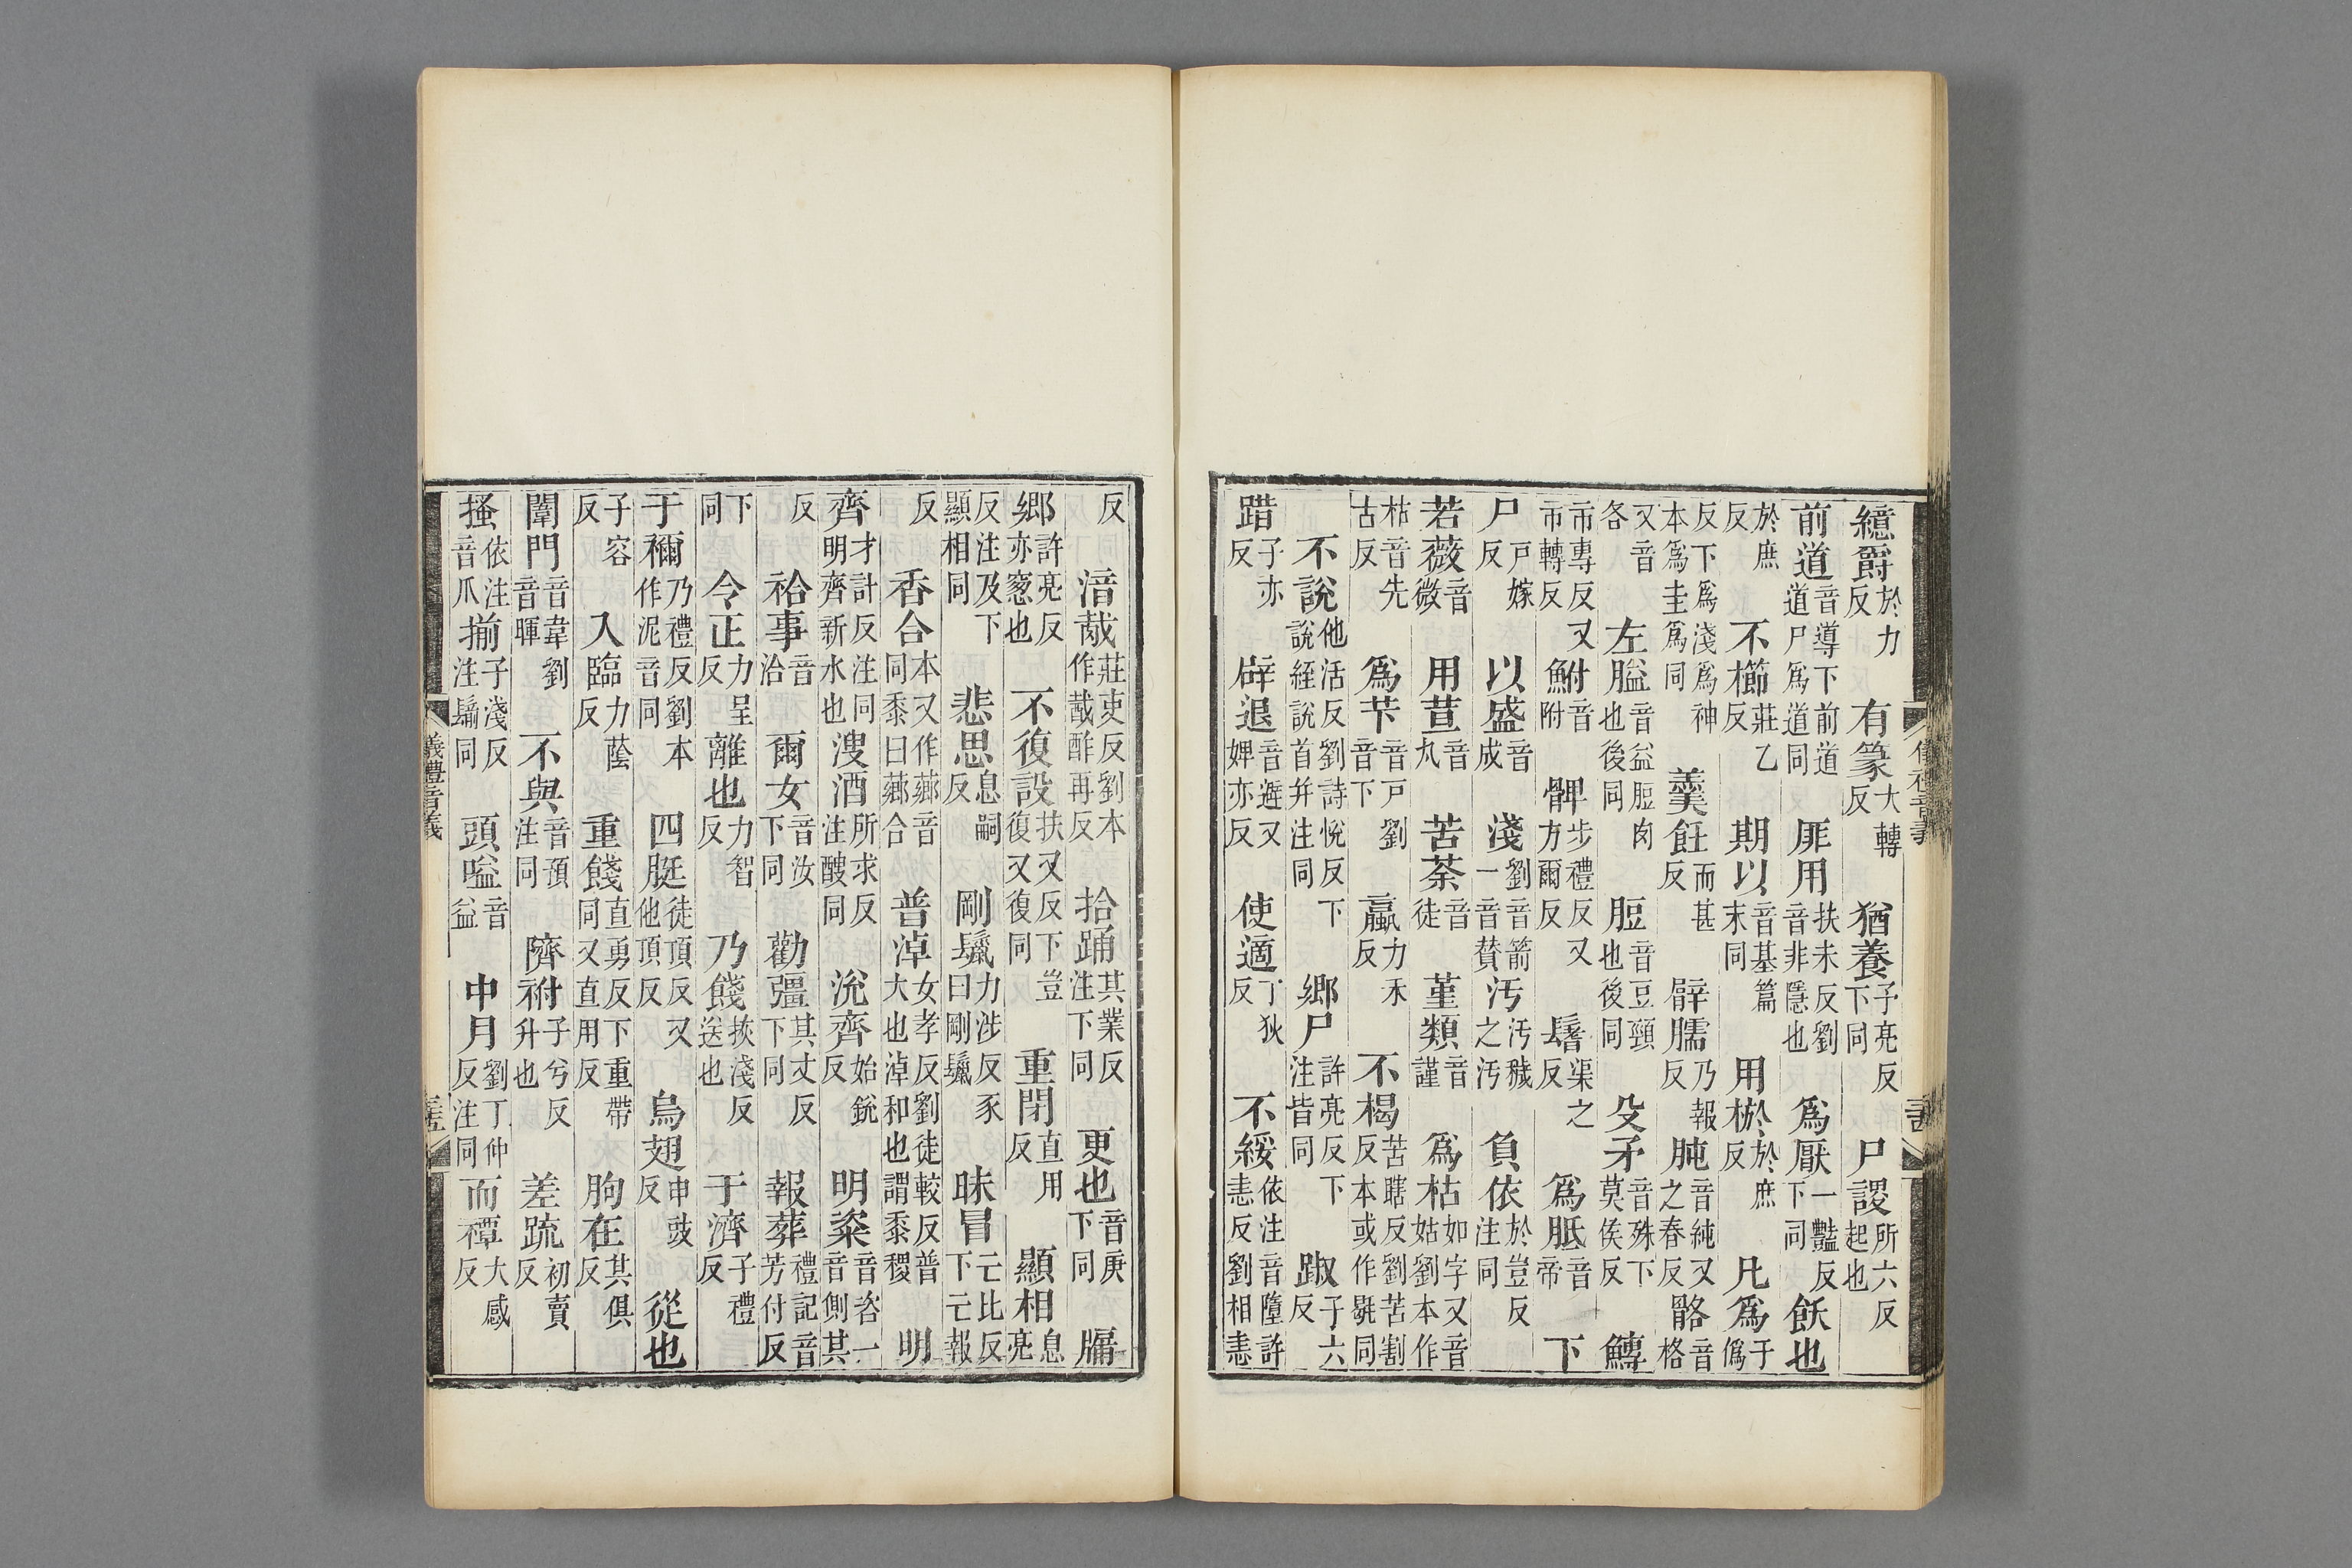 繶爵於力反有篆大轉反猶養子亮反下同尸謖所六反起也
前道音導下前道道尸爲道同厞用扶未反劉音非隱也爲厭一豔反下同飫也
於庶反不櫛莊乙反期以音基篇末同用棜於庶反凡爲于僞
反下爲淺爲神本爲圭爲同羹飪而甚反臂臑乃報反肫音純又之春反骼音格
又音各左膉音益脰肉也後同脰音豆頸也後同殳矛音殊下莫侯反鱄
市專反又市轉反鮒音附髀步禮反又方爾反鬐渠之反爲胝音帝下
尸戸嫁反以盛音成淺劉音箭一音賛汚汚穢之汚負依於豈反注同
若薇音微用荁音丸苦荼音徒堇類音謹爲枯如字又音姑劉本作
枯音先古反爲芐音戸劉音下蠃力禾反不楬苦瞎反劉苦割反本或作毼同
不說他活反劉詩悅反下說絰說首并注同鄉尸許亮反下注皆同踧子六反
踖子亦反辟退音避又婢亦反使適丁狄反不綏依注音隳許恚反劉相恚
反湇胾莊吏反劉本作截酢再反拾踊其業反注下同更也音庚下同牖
鄉許亮反亦窓也不復設扶又反下豈復又復同重閉直用反顯相息亮
反注及下顯相同悲思息嗣反剛鬣力涉反豕曰剛鬣昧冒亡比反下亡報
反香合本又作薌音同黍曰薌合普淖女孝反劉徒較反普大也淖和也謂黍稷明
齊才計反注同明齊新水也溲酒所求反注醙同涗齊始銳反明粢音咨一音側其
反祫事音洽爾女音汝下同勸彊其丈反下同報葬禮記音芳付反
下同令正力呈反離也力智反乃餞挾淺反送也于濟子禮反
于禰乃禮反劉本作泥音同四脡徒頂反又他頂反烏翅申豉反從也
子容反入臨力蔭反重餞直勇反下重帶同又直用反朐在其俱反
闈門音韋劉音暉不與音預注同隮祔子兮反升也差䟽初賣反
搔依注音爪揃子淺反注鬋同頭嗌音益中月劉丁仲反注同而禫大感反
儀禮音義